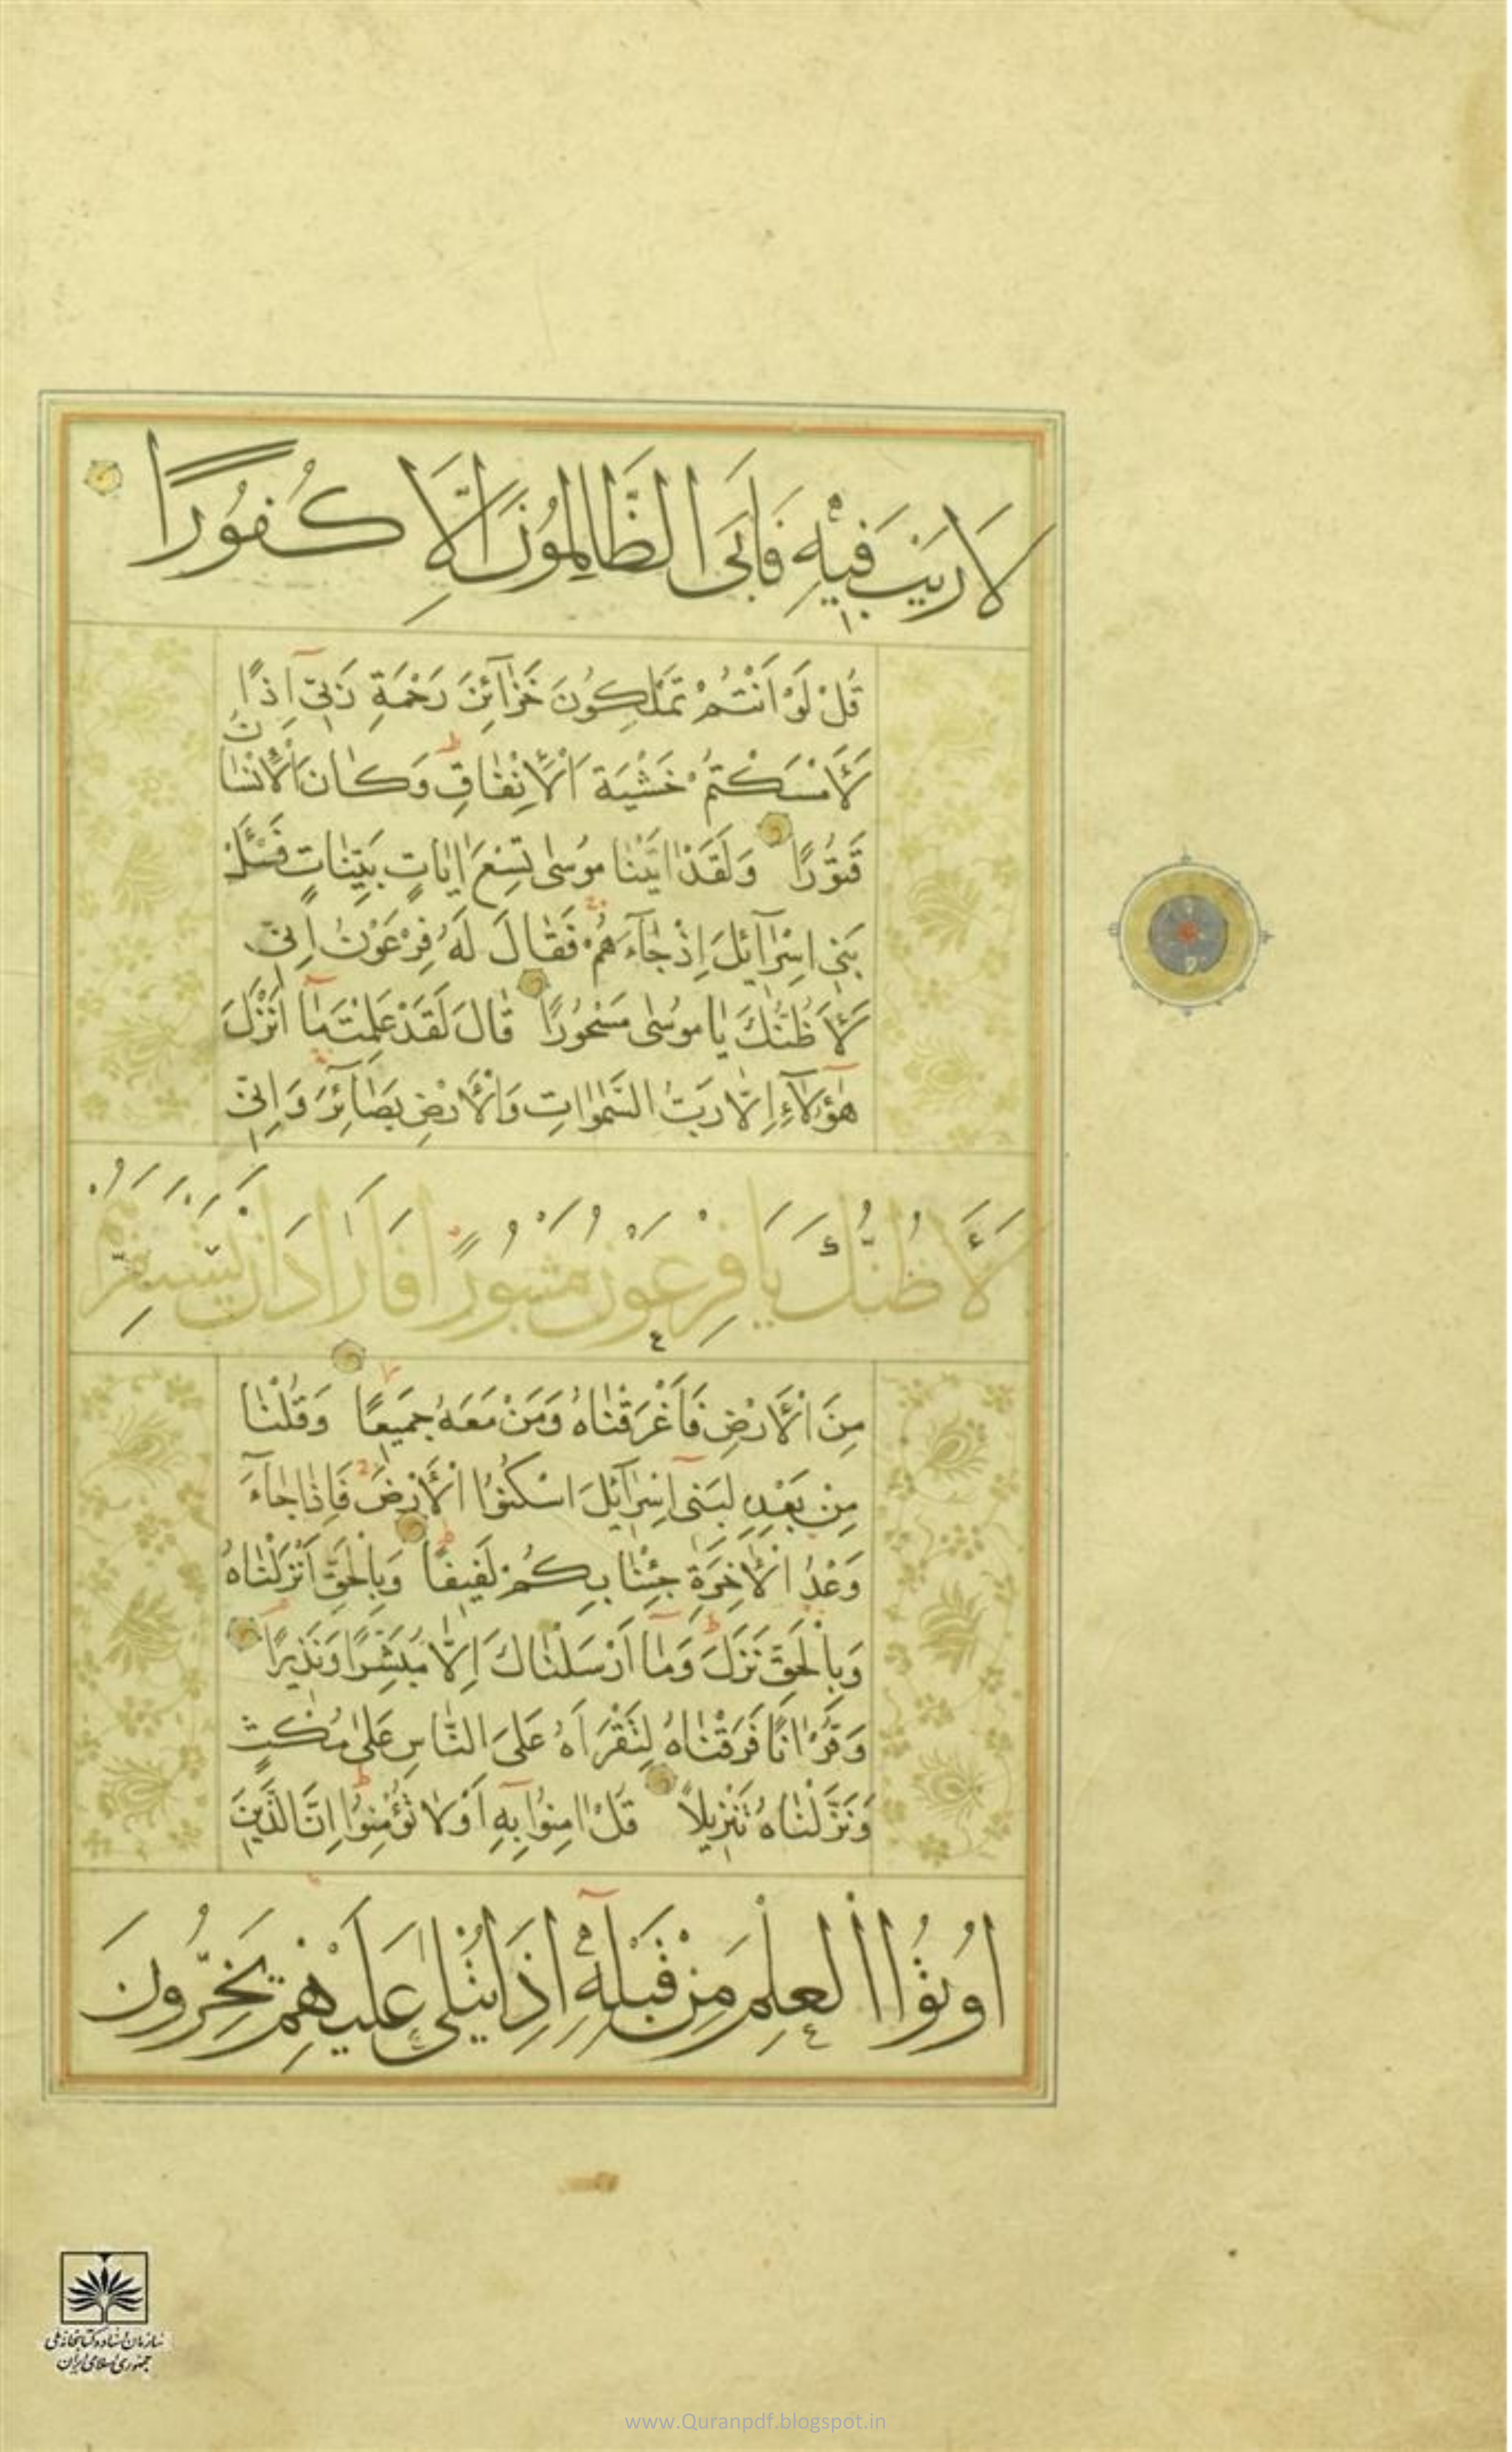 لَا رَيْبَ فِيهِ فَأَبَى الظَّالِمُونَ اِلَّا كُفُورًا
قُلْ لَوْ اَنْتُمْ تَمْلِكُونَ خَزَآئِنَ رَحْمَةِ رَبّٖى اِذًا
لَأَمْسَكْتُمْ خَشْيَةَ الْأِنْفَاقِ وَكَانَ الْأِنْسَانُ
قَتُورًا وَلَقَدْ اٰتَيْنَا مُوسٰى تِسْعَ اٰيَاتٍ بَيِّنَاتٍ فَسْئَلْ
بَنِى اِسْرَآئِلَ اِذْ جَآءَهُمْ فَقَالَ لَهُ فِرْعَوْنُ اِنِّى
لَأَظُنُّكَ يَا مُوسٰى مَسْحُورًا قَالَ لَقَدْ عَلِمْتَ مَآ اَنْزَلَ
هٰؤُلَآءِ اِلَّا رَبُّ السَّمٰوَاتِ وَالْأَرْضِ بَصَآئِرَ وَاِنِّى
لَأَظُنُّكَ يَا فِرْعَوْنُ مَثْبُورًا فَاَرَادَ اَنْ يَسْتَفِزَّ
مِنَ الْأَرْضِ فَأَغْرَقْنَاهُ وَمَنْ مَعَهُ جَمِيعًا وَقُلْنَا
مِنْ بَعْدِهِ لِبَنِىٓ اِسْرَآئِلَ اسْكُنُوا الْأَرْضَ فَاِذَا جَآءَ
وَعْدُ الْأٰخِرَةِ جِئْنَا بِكُمْ لَفِيفًا وَبِالْحَقِّ اَنْزَلْنَاهُ
وَبِالْحَقِّ نَزَلَ وَمَآ اَرْسَلْنَاكَ اِلَّا مُبَشِّرًا وَنَذِيرًا
وَقُرْاٰنًا فَرَقْنَاهُ لِتَقْرَاَهُ عَلَى النَّاسِ عَلٰى مُكْثٍ
وَنَزَّلْنَاهُ تَنْزِيلًا قُلْ اٰمِنُوا بِهِٓ اَوْ لَا تُؤْمِنُوا اِنَّ الَّذِينَ
اُوتُوا الْعِلْمَ مِنْ قَبْلِهِٓ اِذَا يُتْلٰى عَلَيْهِمْ يَخِرُّونَ
سازمان اسناد و کتابخانه ملی
جمهوری اسلامی ایران
www.Quranpdf.blogspot.in